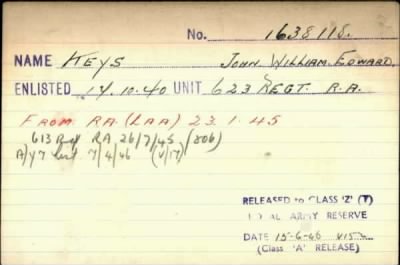 No. 1638118.
NAME KEYS JOHN. WILLIAM. EDWARD.
ENLISTED 17.10.40 UNIT 623 REGT. R.A.
FROM RA (LAA) 23.1.45
613 Regt RA 26/7/45 (806)
A/Y7 List 7/4/46 (V/17)
RELEASED to CLASS 'Z' (T)
ROYAL ARMY RESERVE
DATE 15-6-46
(Class 'A' RELEASE)